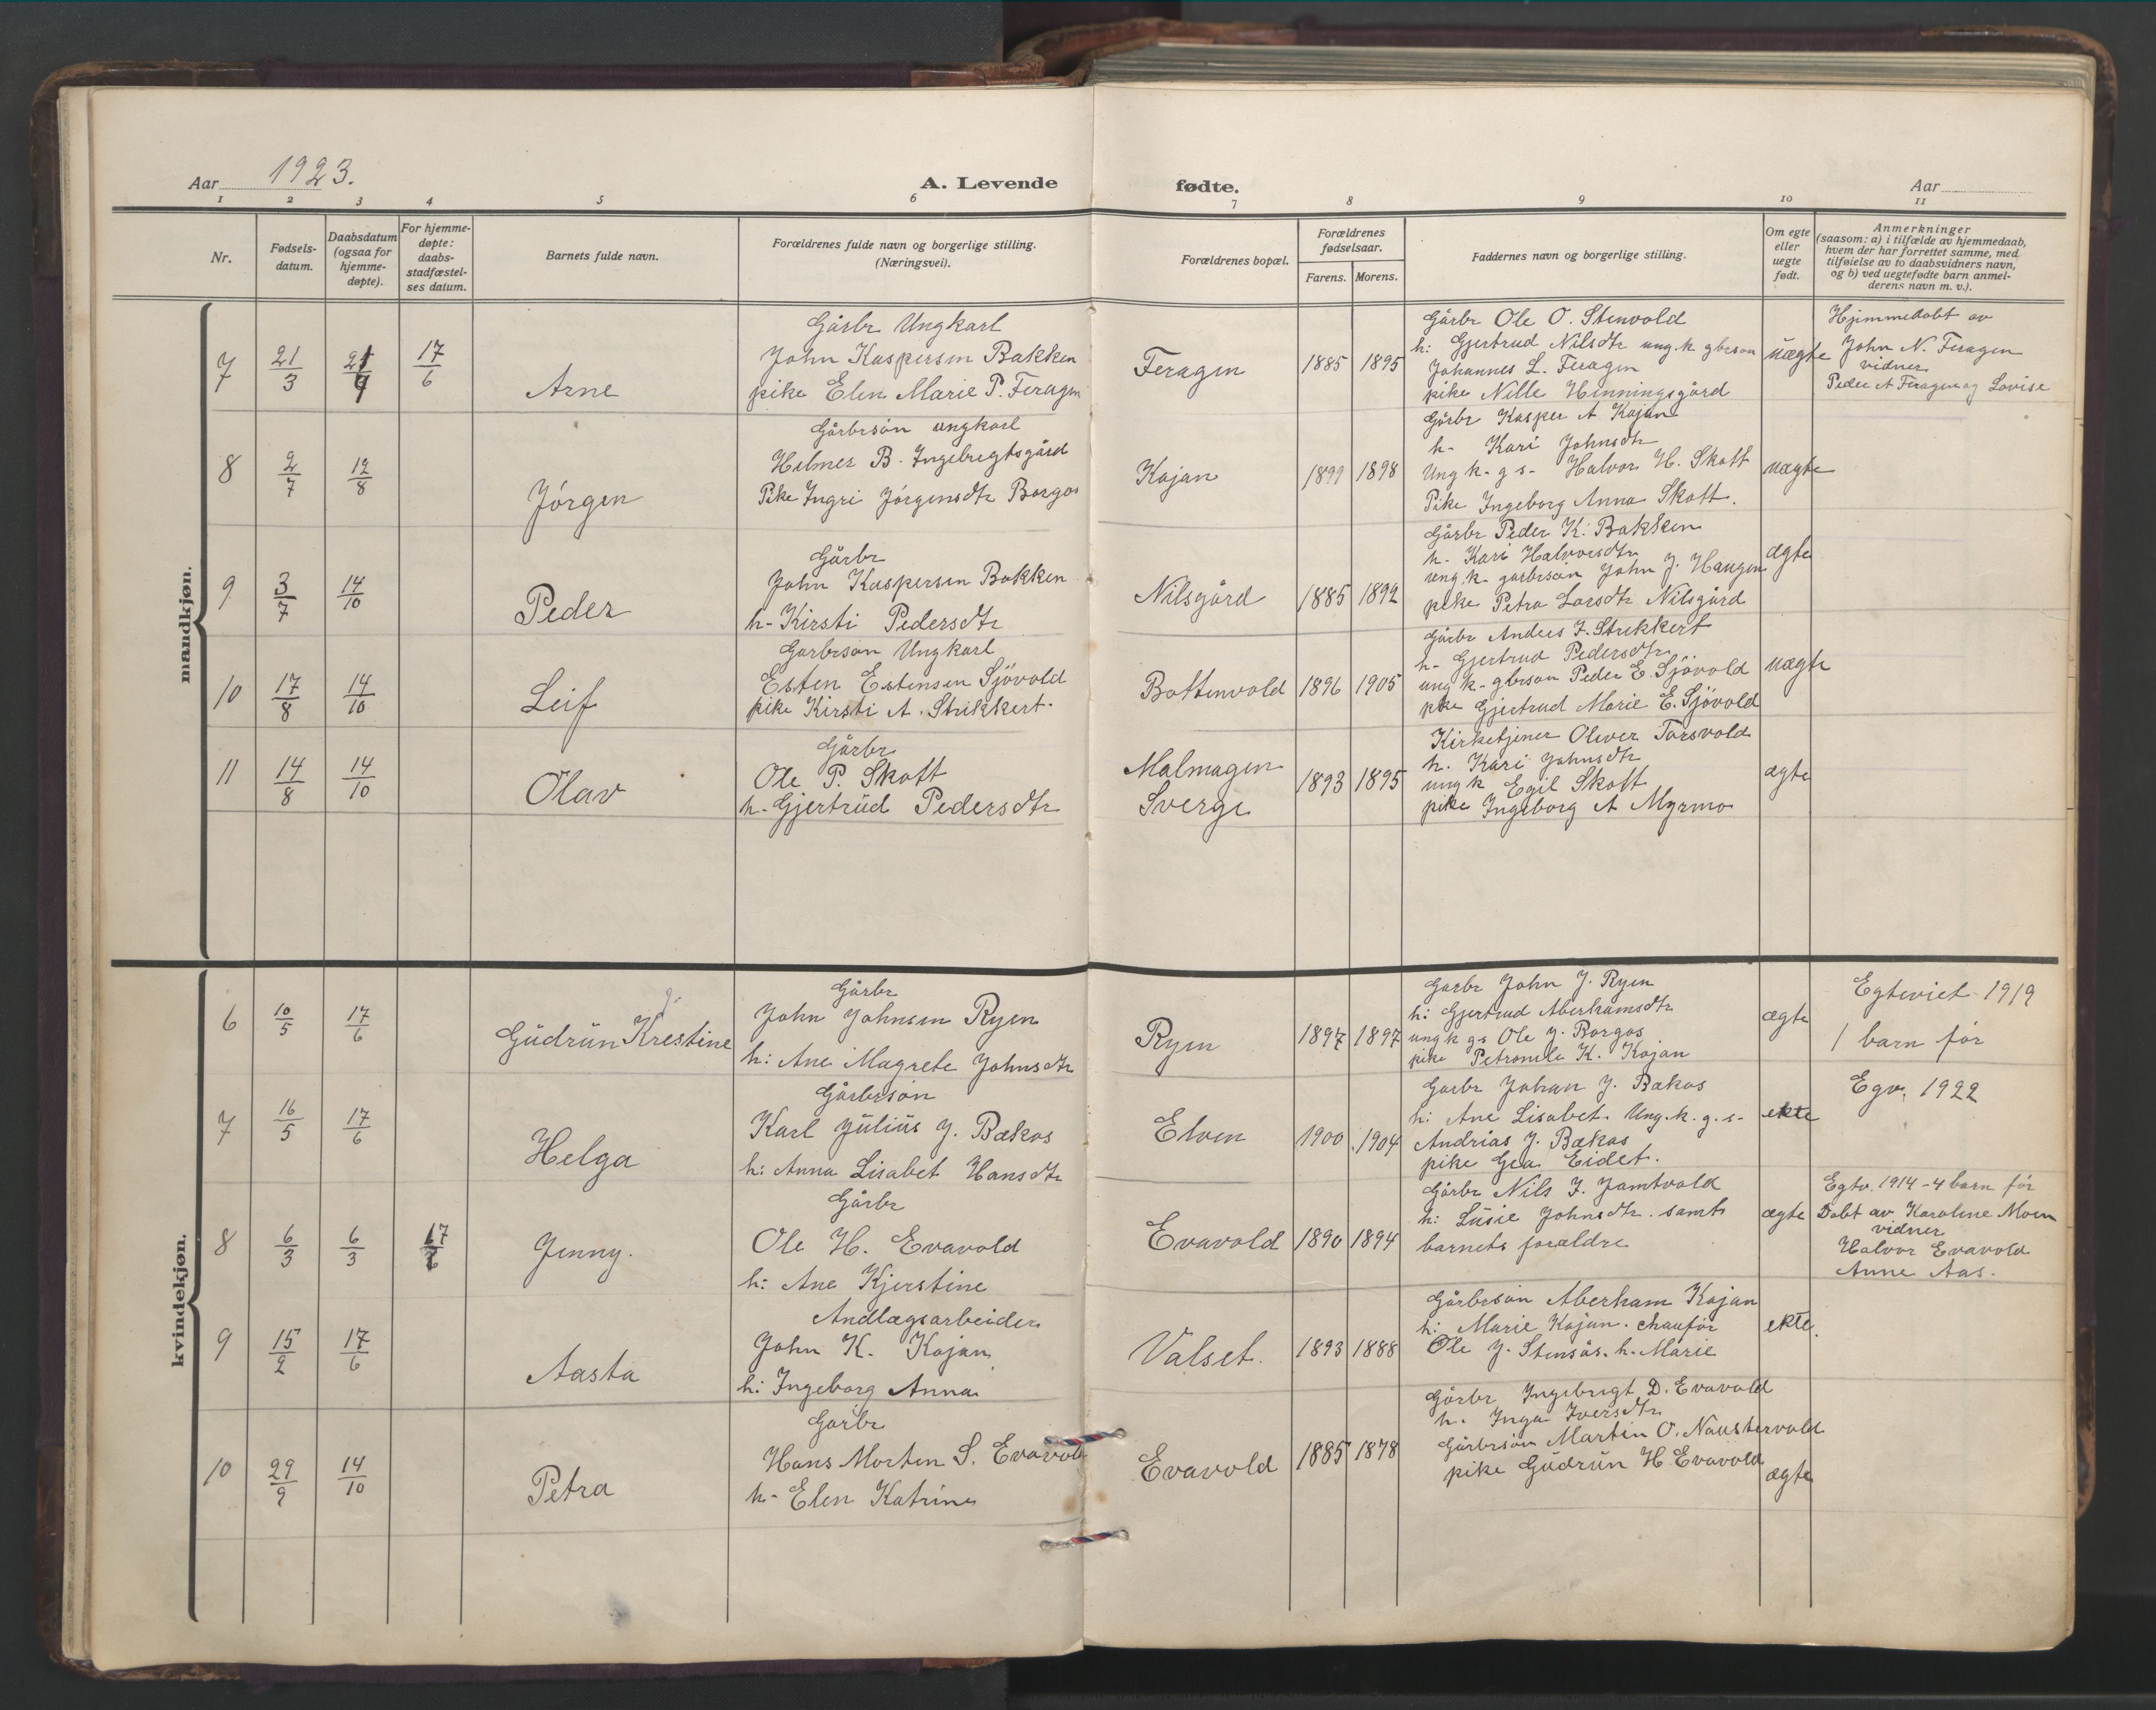 Aar 1923.
A. Levende fødte.
Aar
1 2 3 4 5 6 7 8 9 10 11
Nr.
Fødsels-
datum.
Daabsdatum
(ogsaa for
hjemme-
døpte).
For hjemme-
døpte:
daabs-
stadfæstel-
ses datum.
Barnets fulde navn.
Forældrenes fulde navn og borgerlige stilling.
(Næringsvei).
Forældrenes bopæl.
Forældrenes
fødselsaar.
Farens. Morens.
Faddernes navn og borgerlige stilling.
Om egte
eller
uegte
født.
Anmerkninger
(saasom: a) i tilfælde av hjemmedaab,
hvem der har forrettet samme, med
tilføielse av to daabsvidners navn,
og b) ved uegtefødte barn anmel-
derens navn m. v.).
mandkjøn.
7 21/3 17/6
Arne
Gårbr Ungkarl
John Kaspersen Bakken
pike Elen Marie P. Feragen
Feragen
1885 1895
Gårbr Ole O. Stenvold
h: Gjertrud Nilsdtr ung.k gbrson
Johannes L. Feragen
pike Nille Henningsgård
uægte
Hjemmedøbt av
John N. Feragen
vidner
Peder A Feragen og Lovise
8 2/7 12/8
Jörgen
Gårbrsön ungkarl
Helmer B. Ingebregtsgård
Pike Ingri Jörgensdtr Borgos
Kojan
1899 1898
Gårbr Kasper A Kojan
h- Kari Johnsdtr
Ung k- g s- Halvor H. Skott
Pike Ingeborg Anna Skott.
uægte
9 3/7 14/10
Peder
Gårbr
John Kaspersen Bakken
h- Kirsti Pedersdtr
Nilsgård
1885 1892
Gårbr Peder K. Bakken
h- Kari Halvorsdtr
ung.k- garbrsön John J. Haugen
pike Petra Larsdtr Nilsgård
ægte
10 17/8 14/10
Leif
Garbrson Ungkarl
Esten Estensen Sjövold
pike Kirsti A. Strikkert.
Bottenvold
1896 1905
Gårbr Anders J. Strikkert
h- Gjertrud Pedersdtr
ung k- gbrson Peder E. Sjövold
pke Gjertrud Marie E. Sjövold
uægte
11 14/8 14/10
Olav
Gårbr
Ole P. Skott
h- Gjertrud Pedersdtr
Malmagen
Sverge
1893 1895
Kirketjener Oliver Torsvold
h. Kari Johnsdtr
ung k Egil Skott
pike Ingeborg A Myrmo
ægte
kvindekjøn.
6 10/5 17/6
Gudrun Krestine
Gårbr
John Johnsen Ryen
h: Ane Magrete Johnsdtr
Ryen
1897 1897
Garbr John J. Ryen
h: Gjertrud Aberhamsdtr
ung k gs Ole J. Borgos
pike Petronele K. Kojan
ægte
Egteviet 1919
1 barn för
7 16/5 17/6
Helga
Gårbrsön
Karl Julius J. Bækos
h: Anna Lisabet Hansdtr
Elven
1900 1904
Garbr Johan J. Bækos
h: Ane Lisabet. Ung.k.g.s-
Andrias J. Bækos
pike Gea Eidet.
ekte
Egv. 1922
8 6/3 6/3 17/6
Jenny.
Gårbr
Ole H. Evavold
h: Ane Kjerstine
Evavold
1890 1894
Gårbr Nils J. Jamtvold
h: Lusie Johnsdtr. samt
barnets forældre
ægte
Egtv. 1914 - 4 barn för
Döbt av Karoline Moen
vidner
Halvor Evavold
Anne Aas.
9 15/2 17/6
Aasta
Andlægsarbeider
John K. Kojan
h: Ingeborg Anna
Valset.
1893 1888
Gårbrsön Aberham Kojan
h: Marie Kojan. chauför
Ole J. Stensås. h. Marie
ekte.
10 29/9 14/10
Petra
Garbr
Hans Morten S. Evavold
h- Elen Katrine
Evavold
1885 1878
Gårbr Ingebrigt D. Evavold
h. Inga Iversdtr
Gårbrsön Martin O. Naustervold
pike Gudrun H. Evavold
ægte